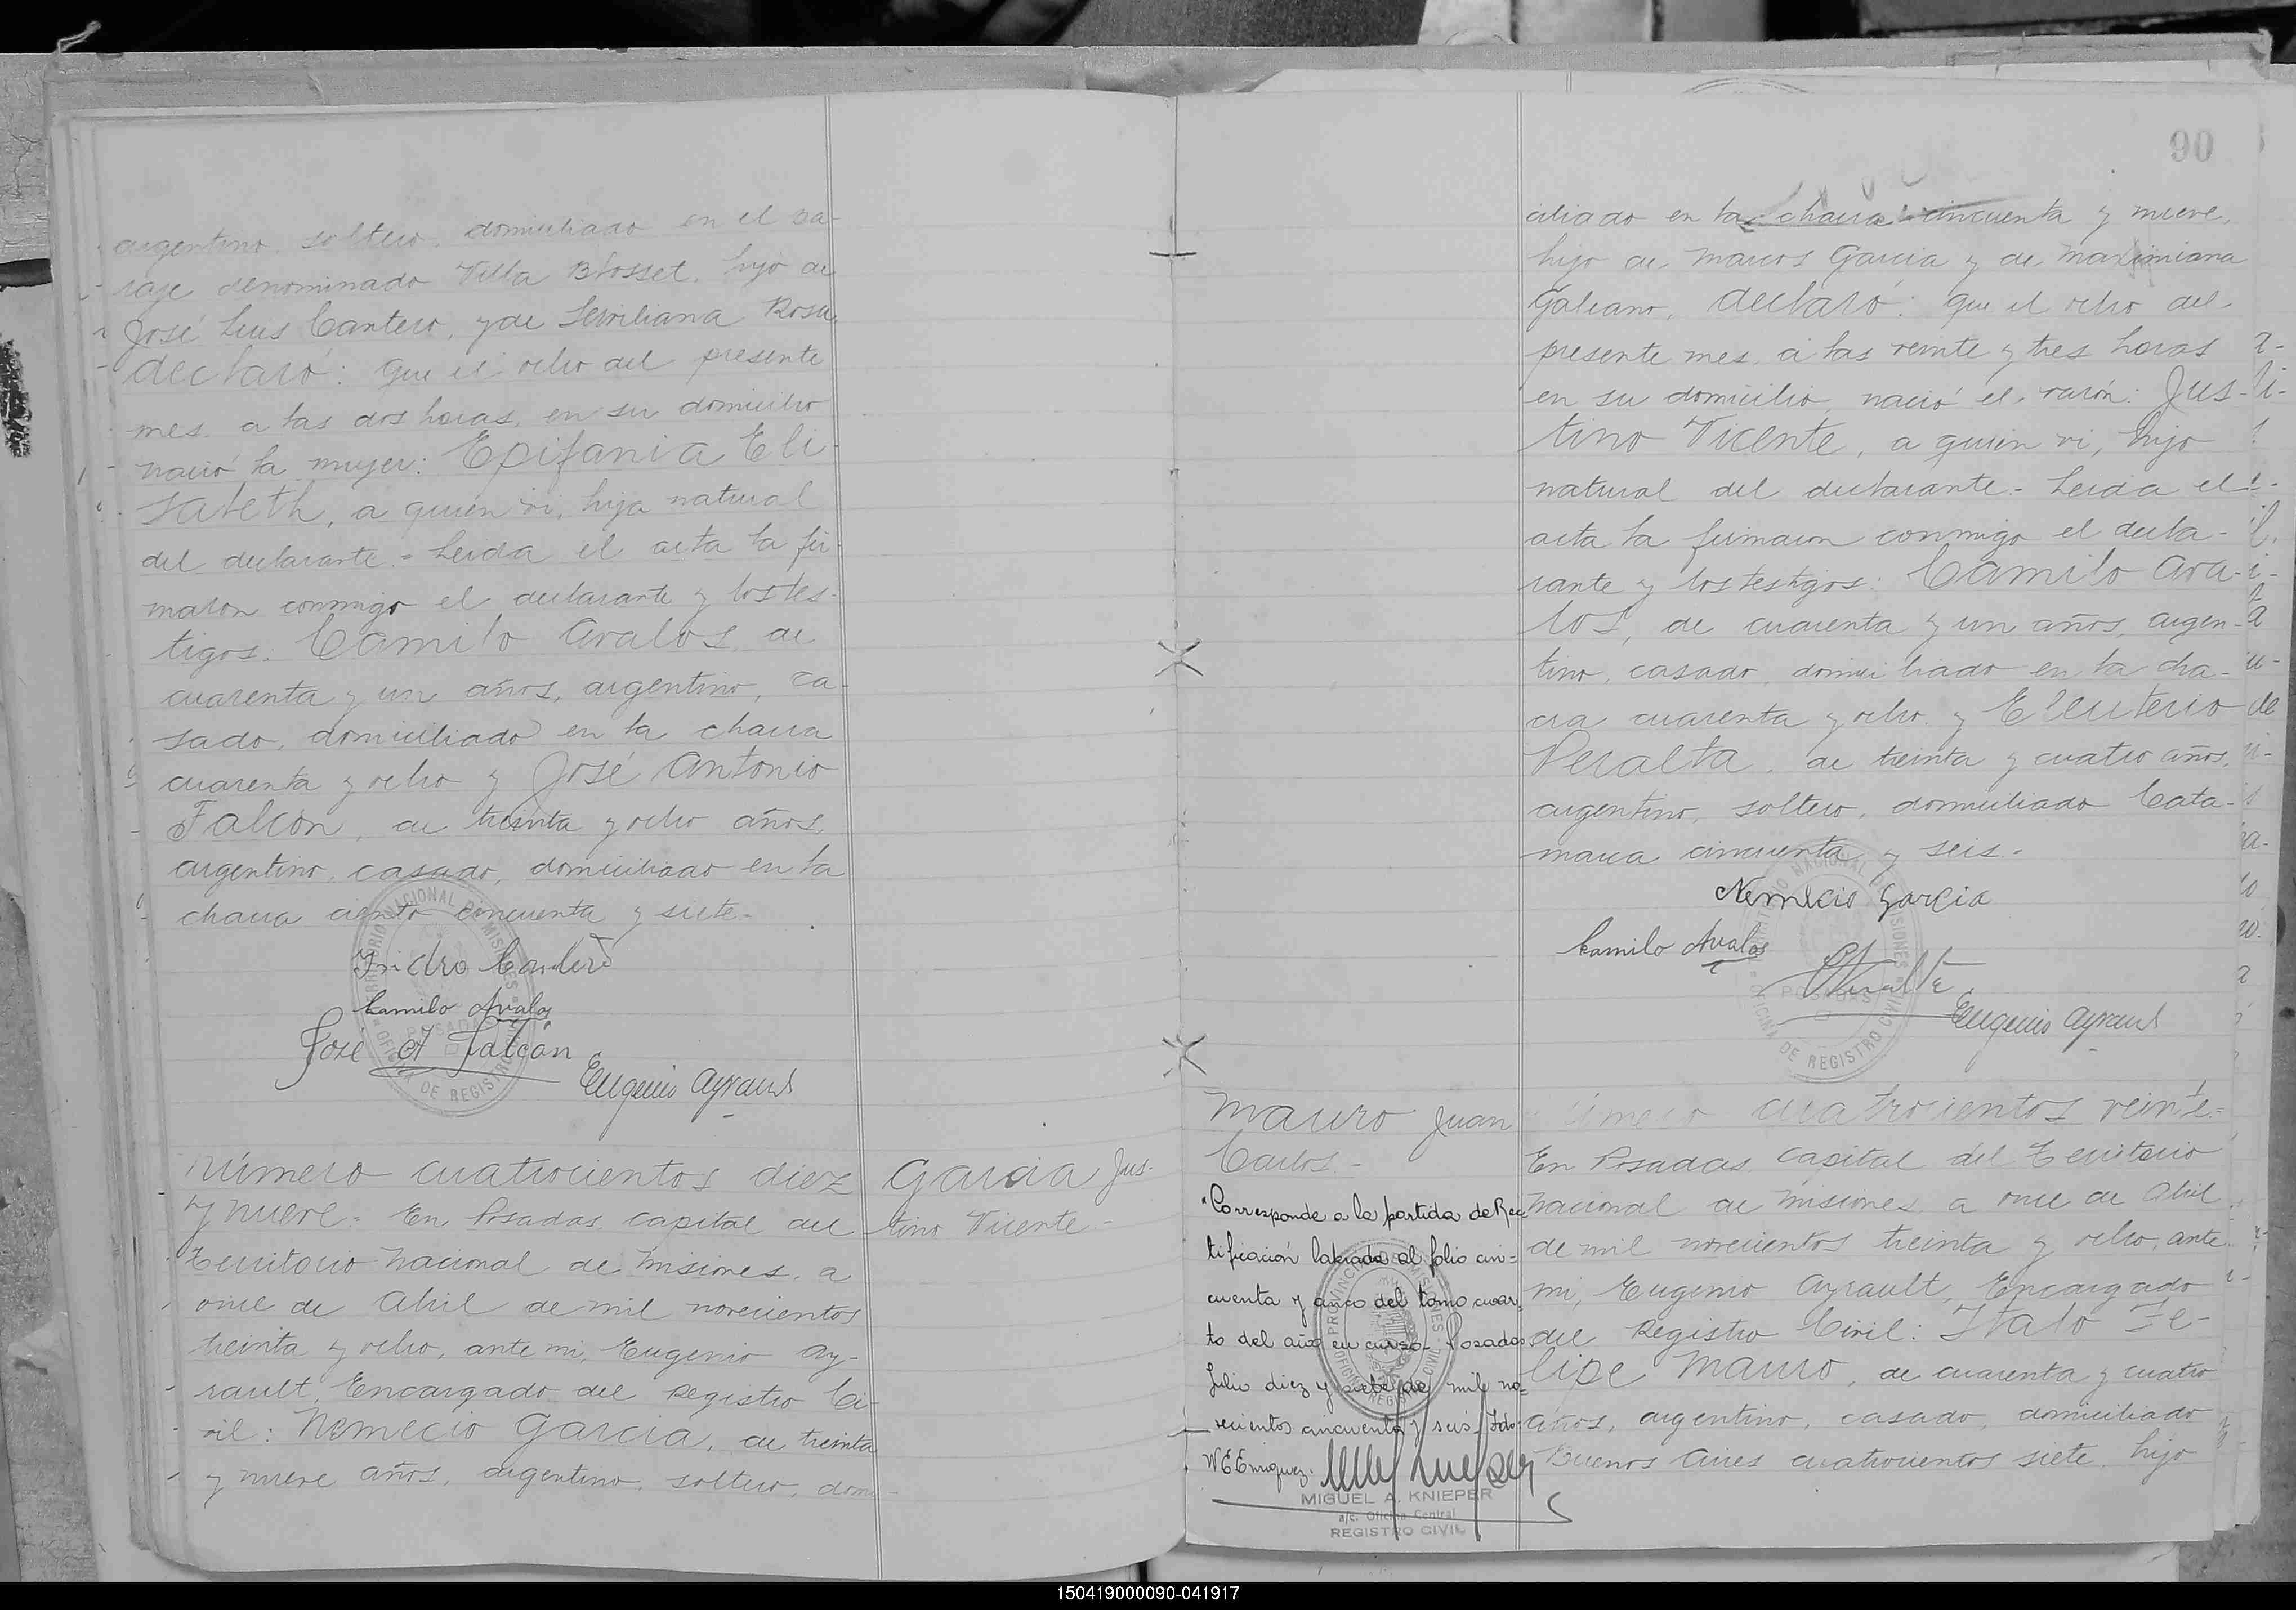 argentino, soltero, domiciliado en el pa-
raje denominado Villa Blosset, hijo de
José Luis Cantero, y de Serviliana Rosa,
declaró: que el ocho del presente
mes, a las dos horas, en su domicilio
nació la mujer: Epifania Eli-
sabeth, a quien vi, hija natural
del declarante.- Leida el acta la fir-
maron conmigo el declarante y los tes-
tigos: Camilo Avalos, de
cuarenta y un años, argentino, ca-
sado, domiciliado en la chacra
cuarenta y ocho y José Antonio
Falcón, de treinta y ocho años,
argentino, casado, domiciliado en la
chacra ciento cincuenta y siete.-
TERRITORIO NACIONAL DE MISIONES
POSADAS
OFICINA DE REGISTRO CIVIL
Isidro Cantero
Camilo Avalos
José A Falcón
Eugenio Ayrault
Número cuatrocientos diez
y nueve: En Posadas, capital del
Territorio Nacional de Misiones, a
once de Abril de mil novecientos
treinta y ocho, ante mi, Eugenio Ay-
rault, Encargado del Registro Ci-
vil: Nemecio Garcia, de treinta
y nueve años, argentino, soltero, domi-
Garcia Jus-
tino Vicente.-
90
ciliado en la chacra cincuenta y nueve,
hijo de Marcos Garcia y de Maximiana
Galeano, declaró: que el ocho del
presente mes, a las veinte y tres horas
en su domicilio, nació el varón: Jus-
tino Vicente, a quien vi, hijo
natural del declarante.- Leida el
acta la firmaron conmigo el decla-
rante y los testigos: Camilo Ava-
los, de cuarenta y un años, argen-
tino, casado, domiciliado en la cha-
cra cuarenta y ocho y Eleuterio
Peralta, de treinta y cuatro años,
argentino, soltero, domiciliado Cata-
marca cincuenta y seis.-
TERRITORIO NACIONAL DE MISIONES
POSADAS
OFICINA DE REGISTRO CIVIL
Nemecio Garcia
Camilo Avalos
Peralta
Eugenio Ayrault
Mauro Juan
Carlos.-
"Corresponde a la partida de Rec-
tificación labrada al folio cin-
cuenta y cinco del tomo cuar-
to del año en curso- Posadas
Julio diez y siete de mil no-
vecientos cincuenta y seis- Fdo:
W E Enriquez.
PROVINCIA DE MISIONES
OFICINA REGISTRO CIVIL
MIGUEL A. KNIEPER
a/c. Oficina Central
REGISTRO CIVIL
Número cuatrocientos veinte=
En Posadas, capital del Territorio
Nacional de Misiones a once de Abril
de mil novecientos treinta y ocho, ante
mi, Eugenio Ayrault, Encargado
del Registro Civil: Italo Fe-
lipe Mauro, de cuarenta y cuatro
años, argentino, casado, domiciliado
Buenos Aires cuatrocientos siete, hijo
150419000090-041917